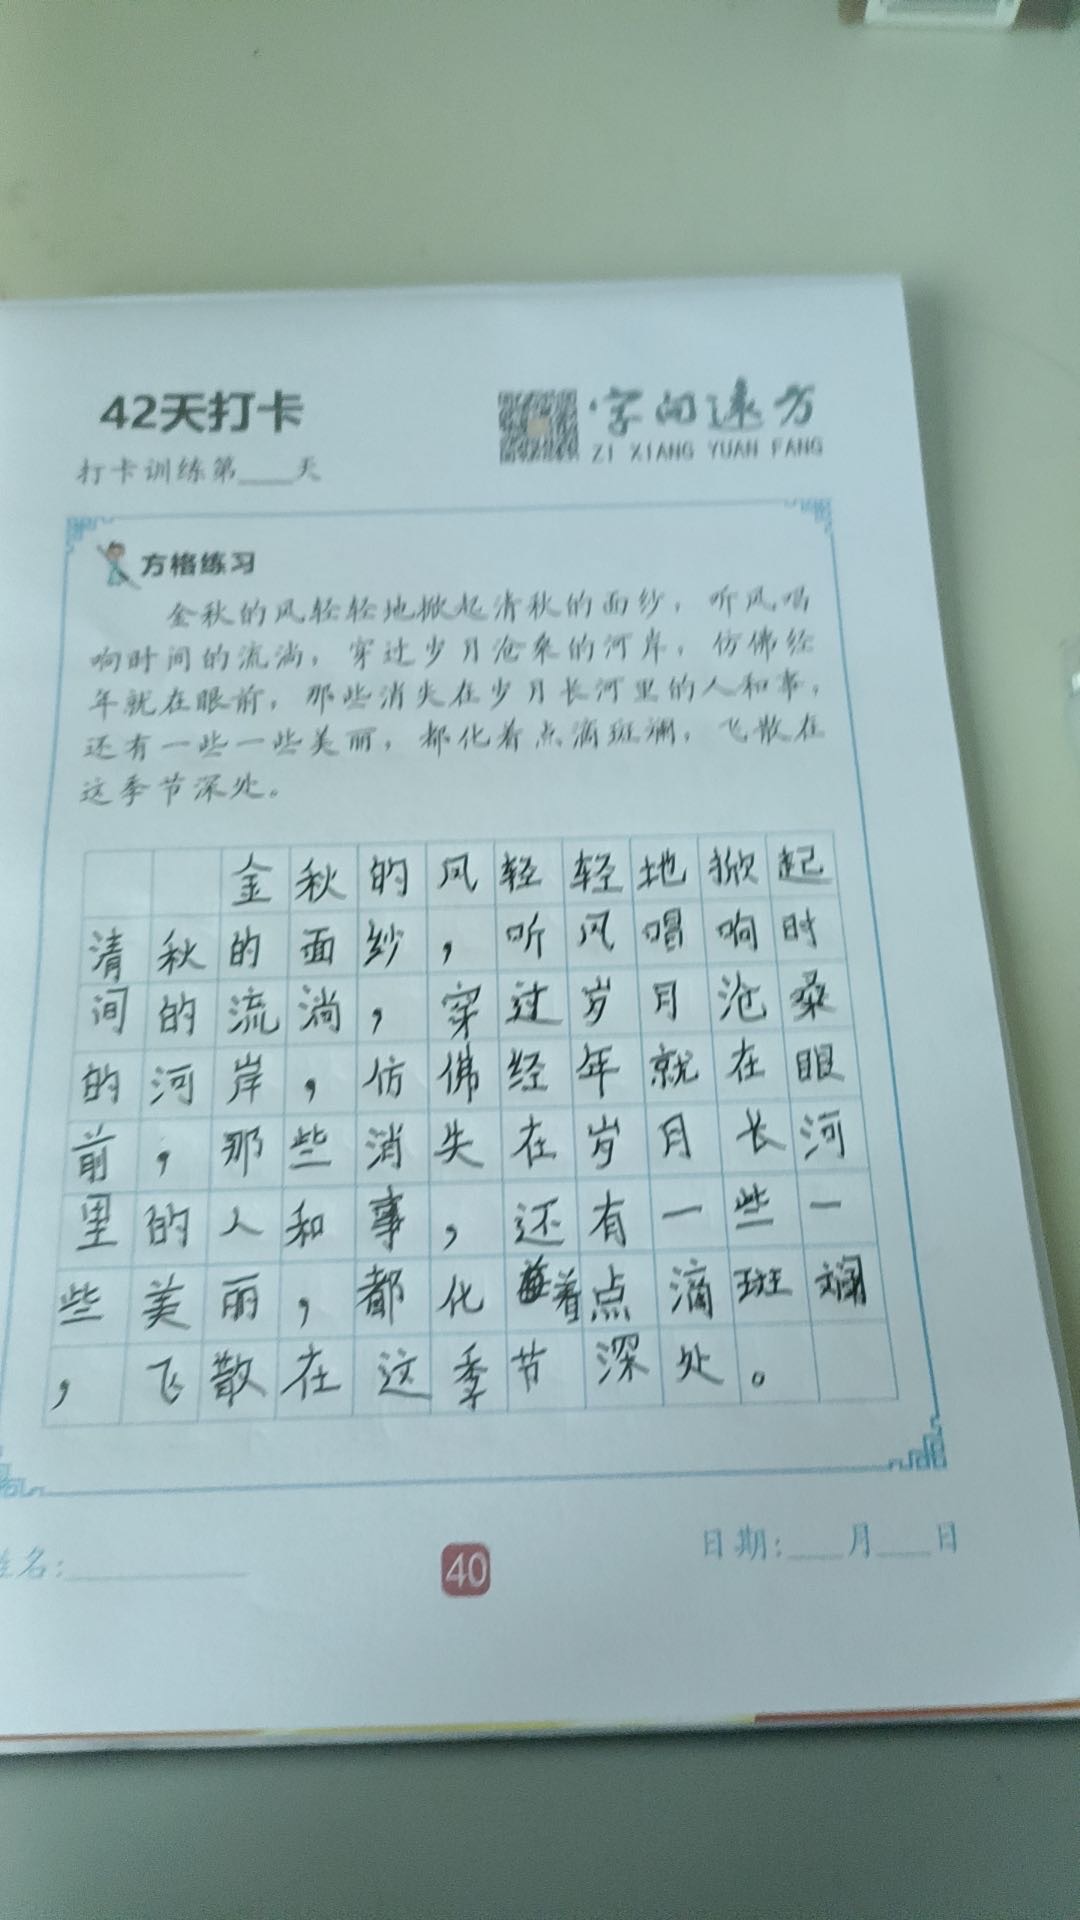 42天打卡
字向远方
ZI XIANG YUAN FANG
打卡训练第____天
方格练习
金秋的风轻轻地掀起清秋的面纱，听风唱
响时间的流淌，穿过岁月沧桑的河岸，仿佛经
年就在眼前，那些消失在岁月长河里的人和事，
还有一些一些美丽，都化着点滴斑斓，飞散在
这季节深处。
金秋的风轻轻地掀起
清秋的面纱，听风唱响时
间的流淌，穿过岁月沧桑
的河岸，仿佛经年就在眼
前，那些消失在岁月长河
里的人和事，还有一些一
些美丽，都化着点滴斑斓
，飞散在这季节深处。
姓名：
40
日期：____月____日